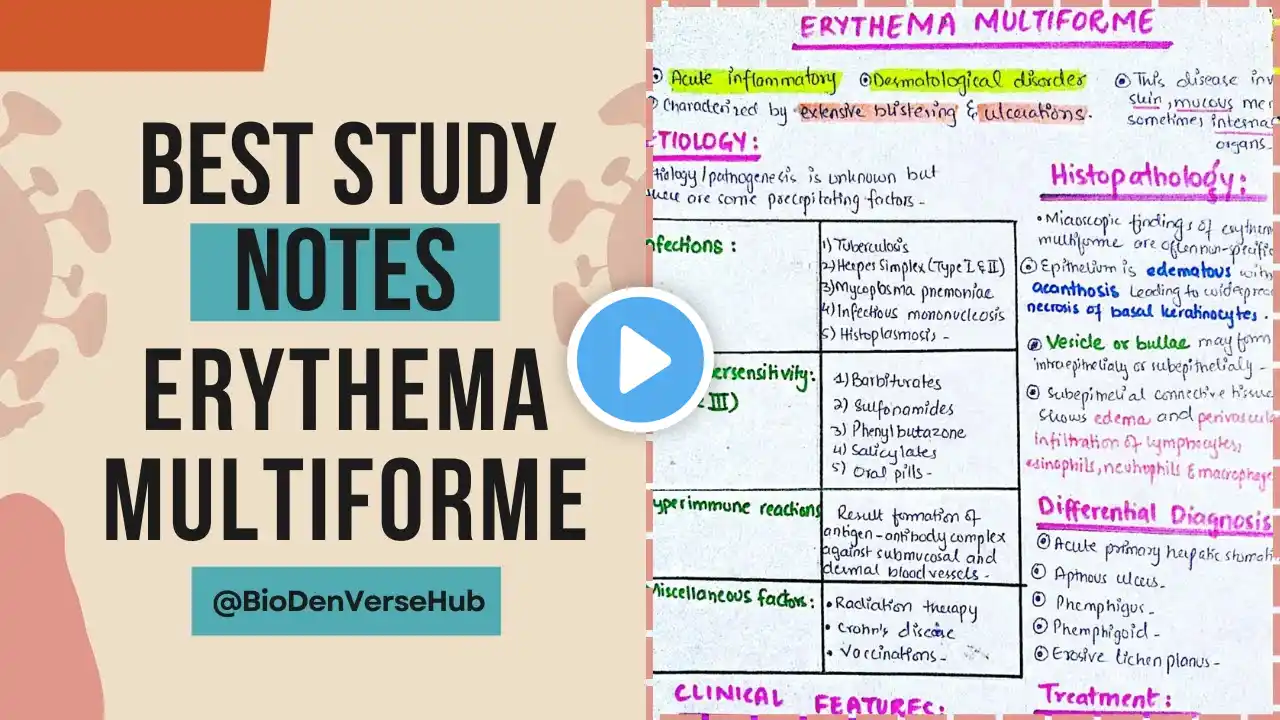 BEST STUDY
NOTES
ERYTHEMA
MULTIFORME
@BioDenVerseHub
ERYTHEMA MULTIFORME
Acute inflammatory
Dermatological disorder
Characterized by extensive blistering & ulcerations.
This disease inv
skin, mucous mem
sometimes interna
organs.
ETIOLOGY:
tiology/pathogenesis is unknown but
there are some precipitating factors -
nfections :
1) Tuberculosis
2) Herpes Simplex (Type I & II)
3) Mycoplasma pnemoniae
4) Infectious mononucleosis
5) Histoplasmosis -
ersensitivity:
III)
1) Barbiturates
2) Sulfonamides
3) Phenyl butazone
4) Salicylates
5) Oral pills -
yperimmune reactions
Result formation of
antigen-antibody complex
against submucosal and
dermal blood vessels -
Miscellaneous factors:
• Radiation therapy
• Crohn's disease
• Vaccinations -
CLINICAL FEATURES:
Histopathology:
• Microscopic findings of erythem
multiforme are often non-specific
Epithelium is edematous with
acanthosis leading to widespread
necrosis of basal keratinocytes.
Vesicle or bullae may form
intraepithelialy or subepithelialy -
Subepithelial connective tissue
shows edema and perivascula
infiltration of lymphocytes,
esinophils, neutrophils & macrophage
Differential Diagnosis
Acute primary herpatic stomati
Apthous ulcers -
Phemphigus -
Phemphigoid -
Erosive lichen planus -
Treatment: